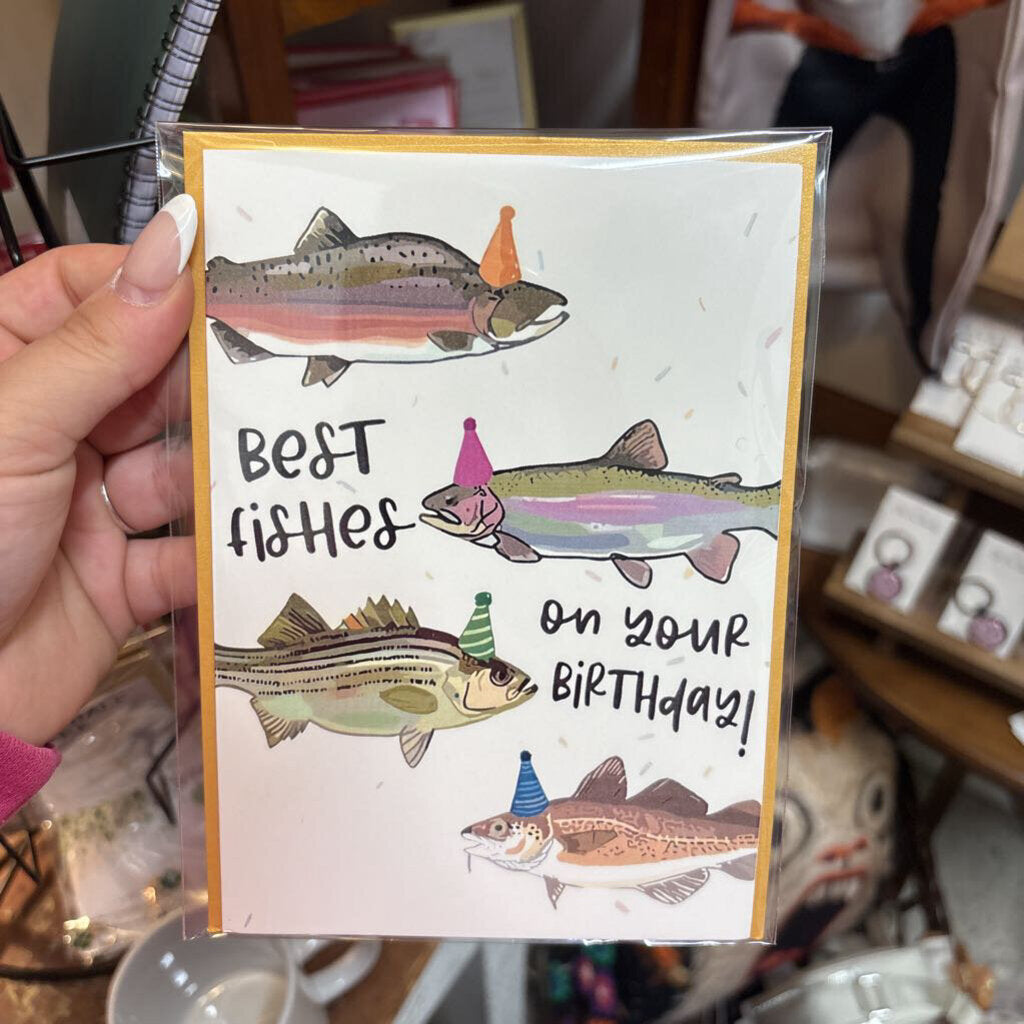 Best
fishes
on your
Birthday!